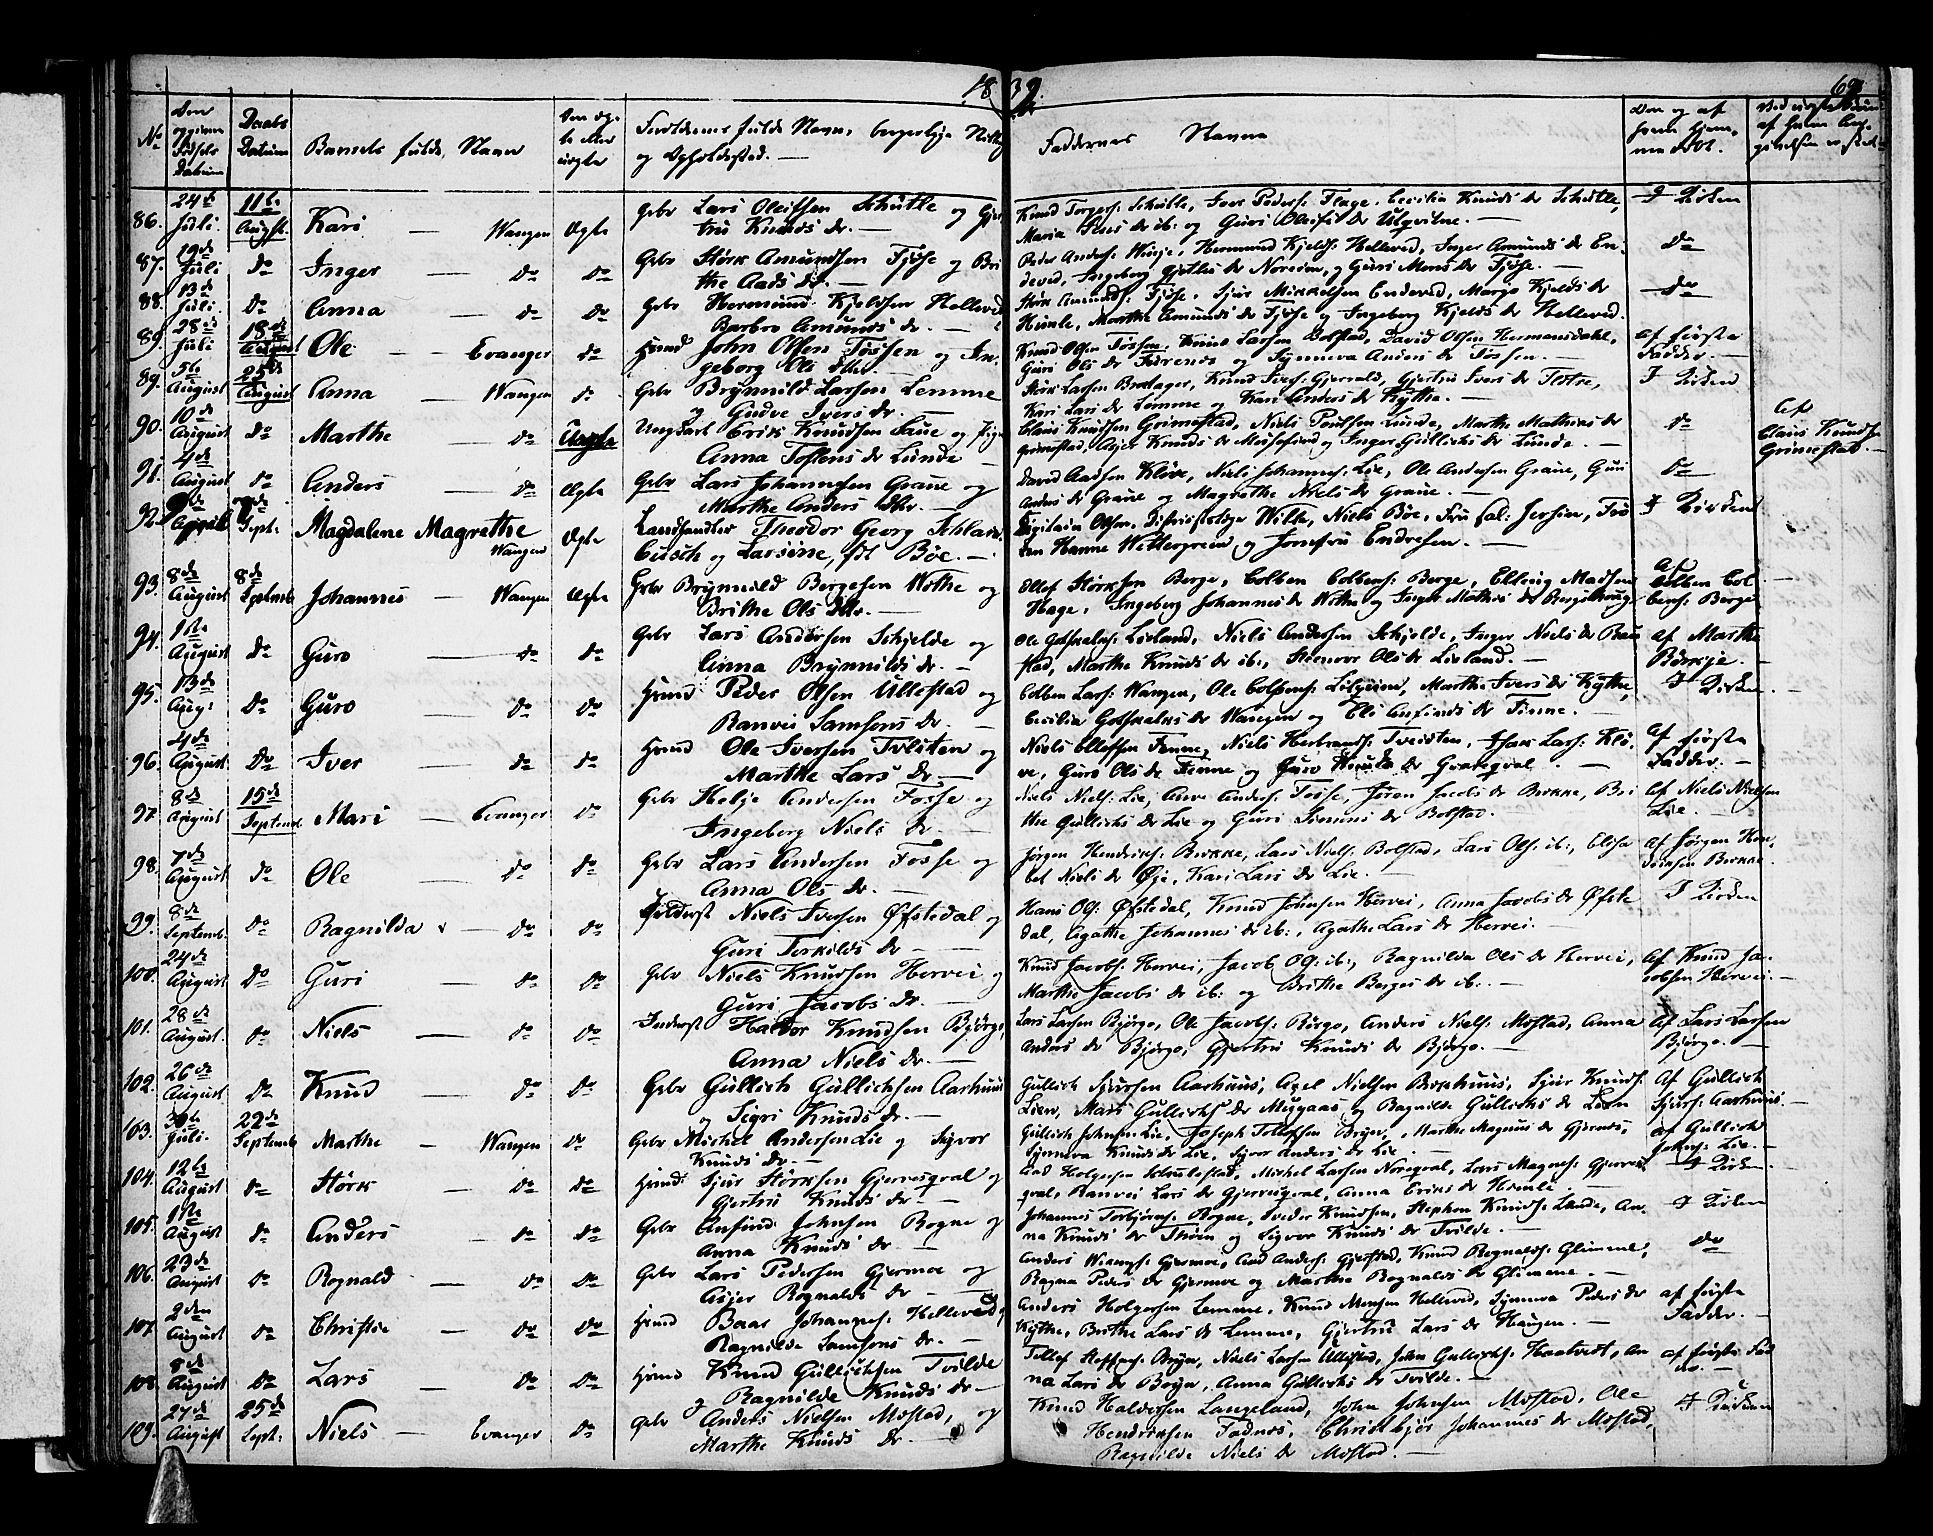 1839.
69
No
Den opgivne Fødsels Datum
Daabs Datum
Barnets fulde Navn
Om ægte eller uægte
Forældrenes fulde Navn, borgerlige
og Opholdssted. —
Faddernes Navne
86. 24de Juli. 11te August Kari — Wangen Ægte Gbr Lars Oleifsen Schutle og Gjer
tru Knuds dr. —
Knud Torgers: Schutle, Iver Peders: Flage, Cecilia Knuds dr Schutle,
Maria dr ib: og Guri Oleifs dr —
I Kirken
87. 19de Juli do Inger — do do Gbr Størk Amundsen Fjøse og Bri
the Aads dr. —
Peder Anders: Winje, Hermund Kjelds: Helleved, Inger Amunds dr En
deved, Ingeborg dr og Guri Mons dr Fjøse. —
do
88. 13de Juli do Anna — do do Gbr Hermund Kjeldsen Helleved
Barbro Amunds dr. —
Størk Amunds: Fjøse, Sjur Mikkelsen Endeved, Margo Kjelds dr
Humle, Marthe Amunds dr Fjøse og Ingeborg Kjelds dr Helleved.
do
89. 28de Juli 18de August Ole — Evanger do Hmd John Olsen Fossen og In
geborg Ols dtr. —
Knud Olsen Fossen, Knud Larsen Bolstad, David Olsen Hermansdahl,
Guri Ols dr og Synneva Anders dr Fossen. —
af første
Fadder. —
89. 5te August 25de August Anna — Wangen do Gbr Brynnild Larsen Lemme
og Gudve Ivers dr. —
Størk Larsen Knud Ivers: Gjerald, Gjertru Ivers dr
Kari Lars dr Lemme og Kari Anders dr Kythe. —
I Kirken
90. 10de August do Marthe — do Uægte Ungkarl Erik Knudsen Saue og Pige
Anna Tostens dr Lunde —
Claus Knudsen Grimestad, Niels Poulsen Lunde, Marthe Mathias dr
Grimestad, Knuds dr og Inger Gulliks dr Lunde. —
do
Af
Claus Knuds:
Grimestad. —
91. 4de August do Anders — do Ægte Gbr Lars Johannesen Graue og
Marthe Anders dtr. —
David Aadsen Kløve, Niels Johannes: Lie, Ole Andersen Graue, Guri
Anders dr Graue og Magrethe Niels dr Graue. —
do
92. April Sept: Magdalene Magrethe
Wangen Ægte Landhandler Theodor Georg Schlan
busch og Larsine, født Bøe. —
Olsen, Wilke, Niels Bøe, Fru Jersin, Frø
ken Hanne Wettergreen og Jomfru Endresen. —
I Kirken
93. 8de August 8de Septemb Johannes — Wangen Ægte Gbr Brynnild Bergesen Wethe og
Brithe Ols dtr. —
Ellef Størksen Berge, Colben Colbens: Berge, Elling Madsen
Hage, Ingeborg Johannes dr Wethe og Inger Mathis dr
af
Colben Col
bens: Berge
94. 1ste August do Guro — do do Gbr Lars Andersen Schjelde og
Anna Brynnilds dr. —
Ole Gotskalks: Livland, Niels Andersen Schjelde, Inger Niels dr Rau
stad, Marthe Knuds dr ib:, Steenvor Ols dr Livland. —
af Marthe
Børkje. —
95. 13de Aug: do Guro — do do Hmd Peder Olsen Ullestad og
Ranvei Samsons dr. —
Colben Lars: Wangen, Ole Marthe Ivers dr Kythe,
Cecilia Gotskalks dr Wangen og Eli Anfinds dr Finne. —
I Kirken
96. 4de August do Iver — do do Hmd Ole Iversen Tvisten og
Marthe Lars dr. —
Niels Ellefsen Finne, Niels Herbrands: Tveisten, Isak Lars: Klø
ve, Guro Ols dr Finne og Guro Knuds dr —
af første
Fadder. —
97. 8de August 15de Septemb Mari — Evanger do Gbr Helje Andersen Fosse og
Ingeborg Niels dr. —
Niels Niels: Lie, Anve Anders: Fosse, Jøren Jacobs dr Brekke, Bri
the Gulliks dr Lie og Guri Simons dr Bolstad.
af Niels Nielsen
Lie. —
98. 7de August do Ole — do do Gbr Lars Andersen Fosse og
Anna Ols dr. —
Jørgen Hendriks: Brekke, Lars Niels: Bolstad, Lars Ols: ib:, Elisa
bet Niels dr Øye, Kari Lars dr Lie. —
af Jørgen Hen
driksen Brekke
99. 8de Septemb. do Ragnilda — do do Niels Iversen Øfstedal og
Guri Torkilds dr —
Hans Ols: Øfstedal, Knud Johnsen Hervei, Anna Jacobs dr Øfste
dal, Agathe Johannes dr ib:, Agathe Lars dr Hervei.
I Kirken
100. 24de August do Guri — do do Gbr Niels Knudsen Hervei og
Guri Jacobs dr. —
Knud Jacobs: Hervei, Jacob Ols: ib:, Ragnilda Ols dr Hervei,
Marthe Jacobs dr ib: og Brithe Berges dr ib. —
af Knud Ja
cobsen Hervei —
101. 28de August. do Niels — do do Inderst Haldor Knudsen Bjørgo,
Anna Niels dr. —
Lars Larsen Bjørgo, Ole Jacobs: Børgo, Anders Niels: Mostad, Anna
Anders dr Bjørgo, Gjertru Knuds dr Bjørgo. —
af Lars Larsen
Bjørgo. —
102. 26de August do Knud — do do Gbr Gullich Gullichsen Aarhuus
og Segri Knuds dr. —
Gullich Sjursen Aarhuus, Axel Nielsen Brekhuus, Sjur Knuds:
Lien, Mari Gulliks dr Muggaas og Ragnilde Gulliks dr Lien
Af Gullich
Sjurs: Aarhuus. —
103. 30te Juli. 22de Septemb Marthe — Wangen do Gbr Michel Andersen Lie og Sygvor
Knuds dr. —
Gullich Johnsen Lie, Joseph Tollefsen Bryn, Marthe Magnus dr Gjernes,
Synneva Knuds dr Lie, Sigvor Anders dr Lie. —
af Gullich
Johns: Lie. —
104. 12te August do Størk — do do Hmd: Sjur Størksen Gjerresqval og
Gjertru Knuds dr —
Aad Holgersen Michel Larsen Noreqval, Lars Magnes: Gjerres
qval, Ranvei Lars dr Gjerresqval, Anna Eriks dr Humle. —
I Kirken
105. 1ste August do Anders — do do Gbr Anfind Johnsen Rogne og
Anna Knuds dr —
Johannes Torbjørns: Rogne, Peder Knudsen, Stephen Knuds: Lunde, An
na Knuds dr og Sigvor Knuds dr Tvilde. —
I Kirken
106. 23de August do Rognald — do do Gbr Lars Pedersen Gjermoe og
Rognalds dr —
Anders Gjermoe, Aad Anders: Gjelstad, Knud Rognalds: Glimme,
Ragna Peders dr Gjermoe og Marthe Rognalds dr Glimme. —
do
107. 2den August do Christie — do do Hmd Baar Johannes: Helleved og
Ragnilde Samsons dr. —
Anders Holgersen Lemme, Knud Monsen Helleved, Synneva Peders dr
Kythe, Brithe Lars dr Lemme, Gjertru Lars dr Haugen. —
af første
Fadder. —
108. 8de August do Lars — do do Hmd Knud Gullichsen Tvilde
og Ragnilde Knuds dr —
Tollef Steffens: Bryn, Niels Larsen Ullestad, John Gulliks: Haatvedt, An
na Lars dr Bryn, Anna Gulliks dr Tvilde. —
af første Fad
der. —
109. 27de August 25de Sept: Niels — Evanger do Gbr Anders Nielsen Mostad, og
Marthe Knuds dr —
Knud Haldorsen Langeland, John Johnsen Mostad, Ole
Hendriksen Fadnes, Christbjør Johannes dr Mostad,
Ragnilde Niels dr Mostad. —
I Kirken